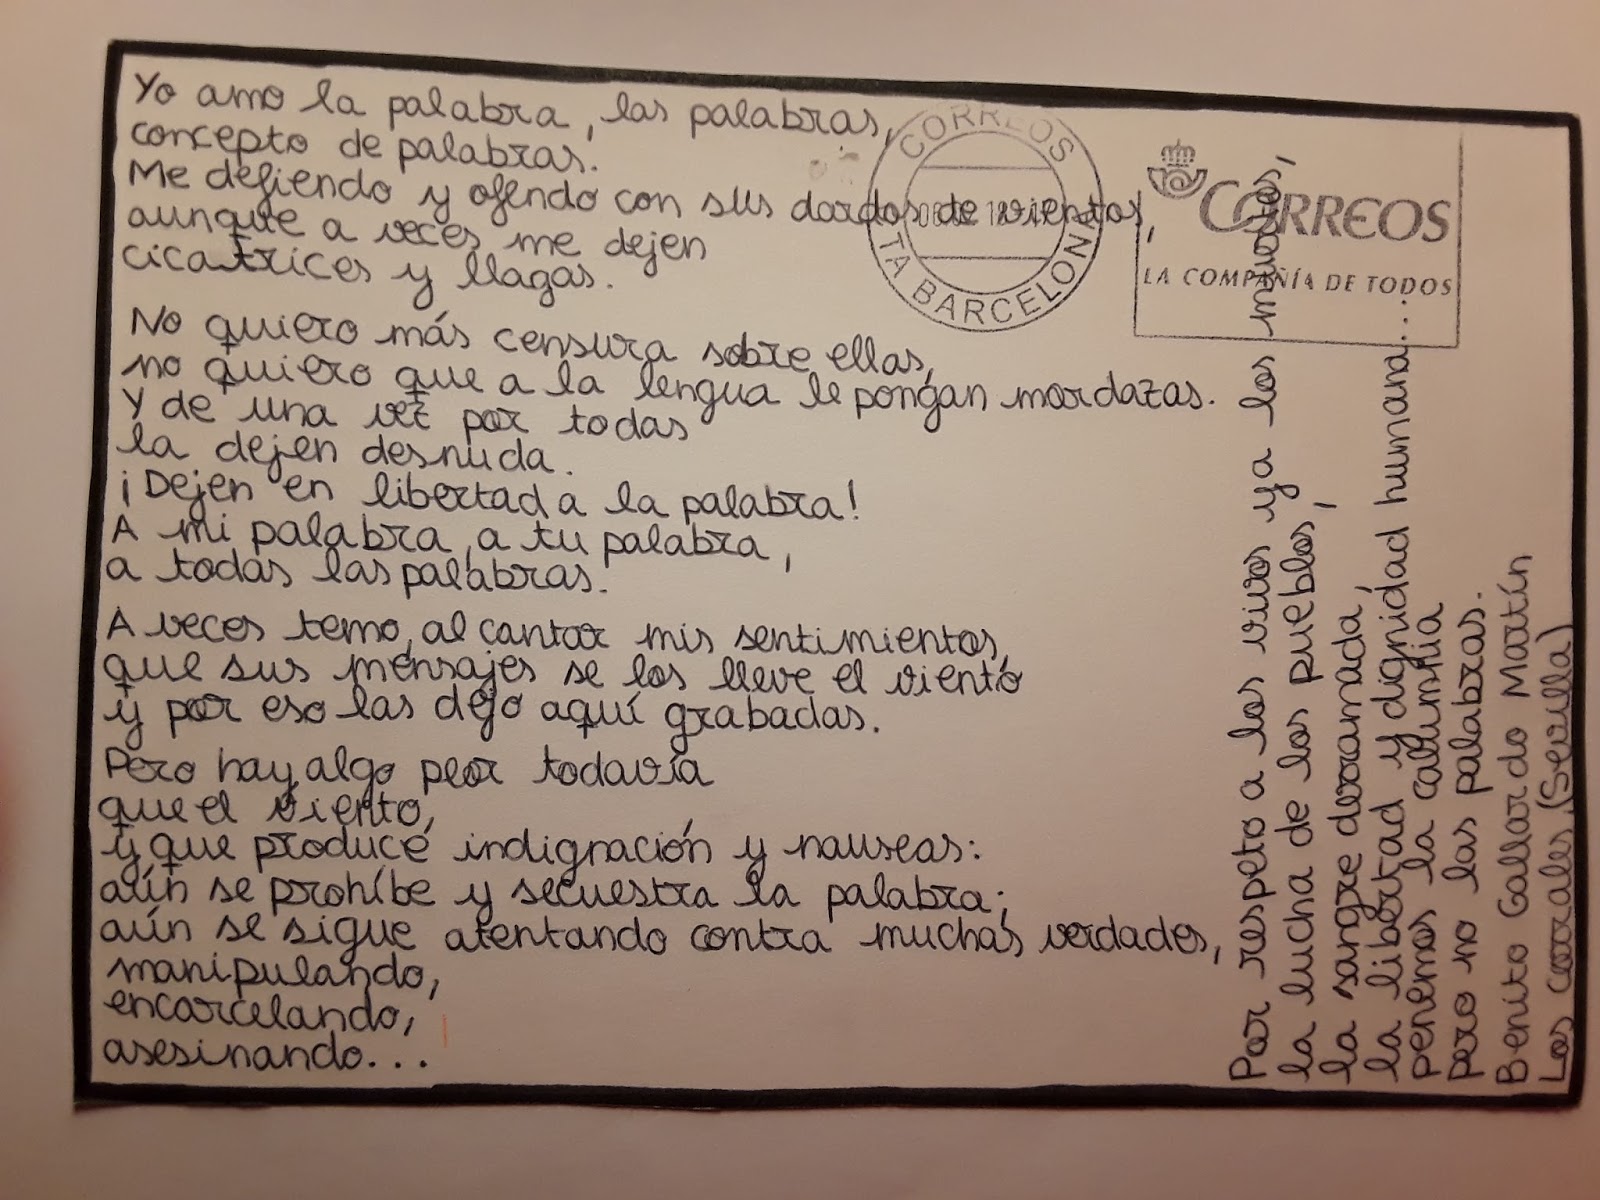 Yo amo la palabra, las palabras,
concepto de palabras.
Me defiendo y ofendo con sus dardos de vientos,
aunque a veces me dejen
cicatrices y llagas.
No quiero más censura sobre ellas,
no quiero que a la lengua le pongan mordazas.
Y de una vez por todas
la dejen desnuda.
¡Dejen en libertad a la palabra!
A mi palabra, a tu palabra,
a todas las palabras.
A veces temo, al cantar mis sentimientos,
que sus mensajes se los lleve el viento
y por eso las dejo aquí grabadas.
Pero hay algo peor todavía
que el viento,
y que produce indignación y nauseas:
aún se prohíbe y secuestra la palabra;
aún se sigue atentando contra muchas verdades,
manipulando,
encarcelando,
asesinando...
Por respeto a los vivos y a los muertos,
la lucha de los pueblos,
la sangre derramada,
la libertad y dignidad humana...
penemos la calumnia
pero no las palabras.
Benito Gallardo Martín
Los Corrales, (Sevilla)
CORREOS
TA BARCELONA
CORREOS
LA COMPAÑÍA DE TODOS